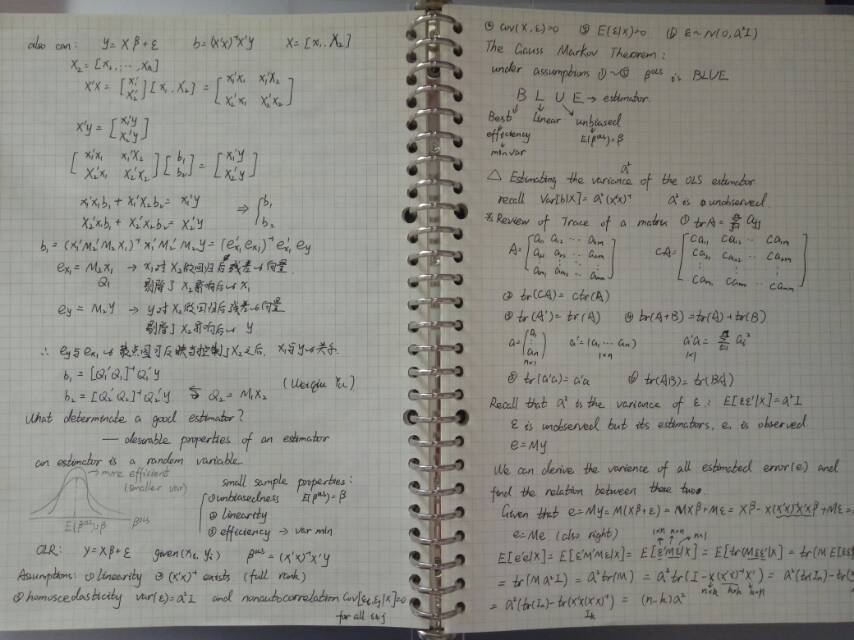 also can: y = Xβ + ε   b = (X'X)⁻¹X'y   X = [x₁, X₂]
X₂ = [x₂, ..., xₖ]
X'X = [x₁' ; X₂'] [x₁, X₂] = [x₁'x₁  x₁'X₂ ; X₂'x₁  X₂'X₂]
X'y = [x₁'y ; X₂'y]
[x₁'x₁  x₁'X₂ ; X₂'x₁  X₂'X₂] [b₁ ; b₂] = [x₁'y ; X₂'y]
x₁'x₁b₁ + x₁'X₂b₂ = x₁'y
X₂'x₁b₁ + X₂'X₂b₂ = X₂'y   ⇒ { b₁ b₂
b₁ = (x₁'M₂'M₂x₁)⁻¹ x₁'M₂'M₂y = (e'ₓ₁eₓ₁)⁻¹ e'ₓ₁ e_y
eₓ₁ = M₂x₁ → x₁对X₂做回归后残差的向量
Q₁   剔除了X₂影响后的x₁
e_y = M₂y → y对X₂做回归后残差的向量
剔除了X₂影响后的y
∴ e_y与eₓ₁的散点图可反映当控制了X₂之后, x₁与y的关系
b₁ = [Q₁'Q₁]⁻¹Q₁'y
b₂ = [Q₂'Q₂]⁻¹Q₂'y   Q₂ = M₁X₂
What determinate a good estimator?
— desirable properties of an estimator
an estimator is a random variable
→ more efficient
(smaller var)
E(β^OLS) = β   β^OLS
small sample properties:
① unbiasedness   E(β^OLS) = β
② linearity
③ efficiency → var min
CLR:   y = Xβ + ε   given (xᵢ, yᵢ)   β^OLS = (X'X)⁻¹X'y
Assumptions: ① linearity   ② (X'X)⁻¹ exists (full rank)
③ homoscedasticity   var(ε) = σ²I   and nonautocorrelation Cov[εᵢ,εⱼ|X]=0
for all i≠j
④ cov(X, ε) = 0   ⑤ E(ε|X) = 0   ⑥ ε ~ N(0, σ²I)
The Gauss Markov Theorem:
under assumptions ①~⑤ β^OLS is BLUE
B L U E → estimator.
Best   Linear   unbiased
efficiency   E(β^OLS) = β
min var
σ²
△ Estimating the variance of the OLS estimator
recall Var[b|X] = σ²(X'X)⁻¹   σ² is unobserved.
* Review of Trace of a matrix   ① trA = Σ aᵢᵢ
A = [a₁₁ a₁₂ ... a₁ₙ ; a₂₁ a₂₂ ... a₂ₙ ; ⋮ ; aₙ₁ aₙ₂ ... aₙₙ]   cA = [ca₁₁ ca₁₂ ... ca₁ₙ ; ca₂₁ ca₂₂ ... ca₂ₙ ; ⋮ ; caₙ₁ caₙ₂ ... caₙₙ]
② tr(cA) = ctr(A)
③ tr(A') = tr(A)   ④ tr(A+B) = tr(A) + tr(B)
a = (a₁ ⋮ aₙ) n×1   a' = (a₁ ... aₙ) 1×n   a'a = Σ aᵢ² 1×1
⑤ tr(a'a) = a'a   ⑥ tr(AB) = tr(BA)
Recall that σ² is the variance of ε: E[εε'|X] = σ²I
ε is unobserved but its estimators, e, is observed
e = My
We can derive the variance of all estimated error(e) and
find the relation between these two.
Given that e = My = M(Xβ+ε) = MXβ + Mε = Xβ - X(X'X)⁻¹X'Xβ + Mε =
e = Mε (also right)   1×n n×n n×1
E[e'e|X] = E[ε'M'Mε|X] = E[ε'Mε|X] = E[tr(Mεε'|X] = tr(M E[εε'
= tr(Mσ²I) = σ²tr(M) = σ²tr(I - X(X'X)⁻¹X') = σ²(tr(Iₙ) - tr(
n×k k×k k×n
= σ²(tr(Iₙ) - tr(X'X(X'X)⁻¹)) = (n-k)σ²
Iₖ